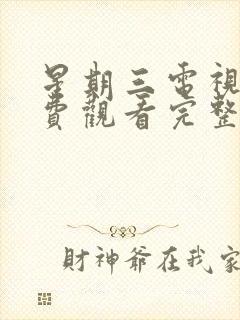 星期三電視
費觀看完整
財神爺在我家